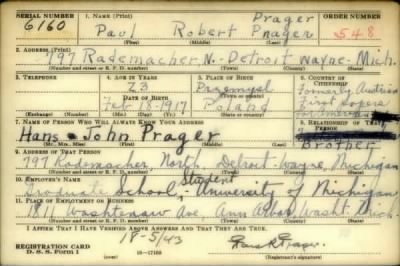 SERIAL NUMBER 1. NAME (Print) Prager ORDER NUMBER
6160 Paul Robert Prager 548
(First) (Middle) (Last)
2. ADDRESS (Print)
797 Rademacher, N. - Detroit Wayne - Mich.
(Number and street or R. F. D. number) (Town) (County) (State)
3. TELEPHONE 4. AGE IN YEARS 5. PLACE OF BIRTH 6. COUNTRY OF CITIZENSHIP
23 Przemysl Formerly Austria
DATE OF BIRTH First Papers
Feb 18 - 1917 Poland for America
(Exchange) (Number) (Mo.) (Day) (Yr.) (State or country)
7. NAME OF PERSON WHO WILL ALWAYS KNOW YOUR ADDRESS 8. RELATIONSHIP OF THAT PERSON
Hans - John Prager Brother
(Mr., Mrs., Miss) (First) (Middle) (Last)
9. ADDRESS OF THAT PERSON
797 Rademacher, North, Detroit - Wayne, Michigan
(Number and street or R. F. D. number) (Town) (County) (State)
10. EMPLOYER'S NAME Student
Graduate School, University of Michigan
11. PLACE OF EMPLOYMENT OR BUSINESS
Washtenaw Ave, Ann Arbor, Washt. Mich.
(Number and street or R. F. D. number) (Town) (County) (State)
I AFFIRM THAT I HAVE VERIFIED ABOVE ANSWERS AND THAT THEY ARE TRUE.
REGISTRATION CARD
D. S. S. Form 1 16-17105 Paul R. Prager